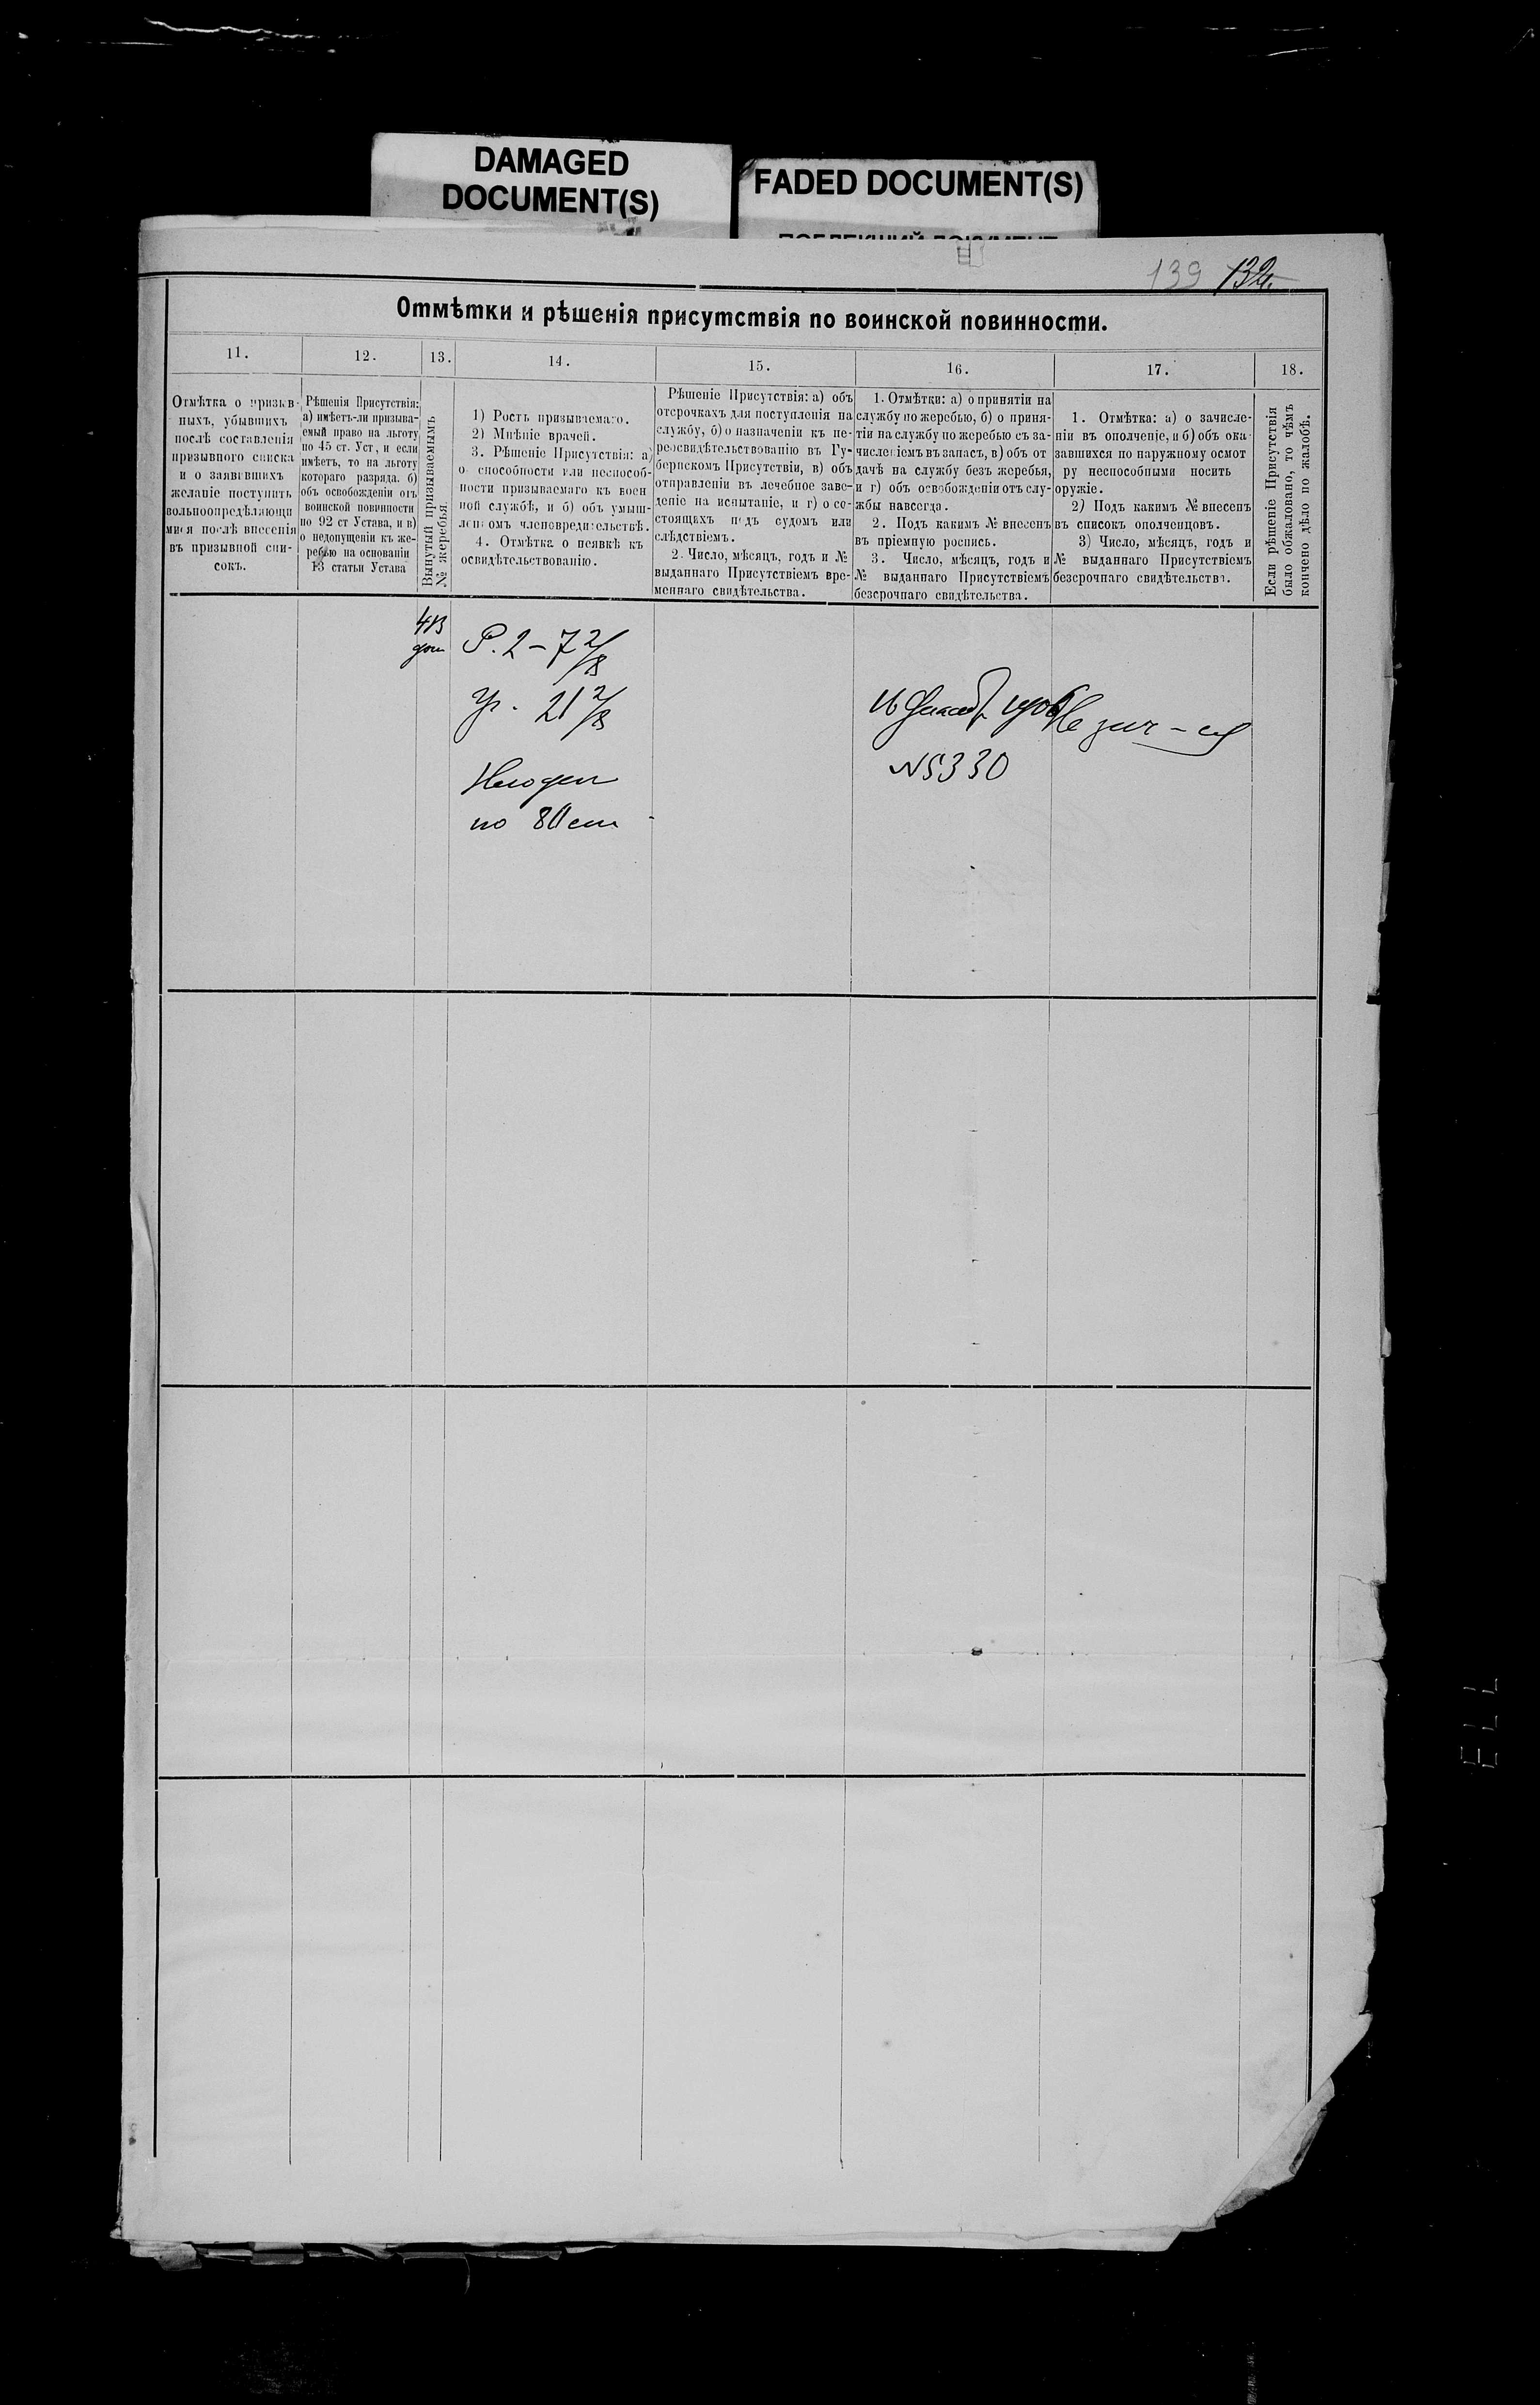 DAMAGED
DOCUMENT(S)
FADED DOCUMENT(S)
139 132.
Отмѣтки и рѣшенія присутствія по воинской повинности.
11.
12.
13.
14.
15.
16.
17.
18.
Отмѣтка о призыв-
ныхъ, убывшихъ
послѣ составленія
призывного списка
и о заявившихъ
желаніе поступить
вольноопредѣляющи
мися послѣ внесенія
въ призывной спи-
сокъ.
Рѣшенія Присутствія:
а) имѣетъ-ли призыва-
емый право на льготу
по 45 ст. Уст, и если
имѣетъ, то на льготу
котораго разряда. б)
объ освобожденіи отъ
воинской повинности
по 92 ст Устава, и в)
о недопущеніи къ же-
ребью на основаніи
13 статьи Устава
Вынутый призываемымъ
№ жеребья.
1) Ростъ призываемаго.
2) Мнѣніе врачей.
3. Рѣшеніе Присутствія: а)
о способности или неспособ-
ности призываемаго къ воен
ной службѣ, и б) объ умыш-
леномъ членовредительствѣ.
4. Отмѣтка о неявкѣ къ
освидѣтельствованію.
Рѣшеніе Присутствія: а) объ
отсрочкахъ для поступленія на
службу, б) о назначеніи къ пе-
реосвидѣтельствованію въ Гу-
бернскомъ Присутствіи, в) объ
отправленіи въ лечебное заве-
деніе на испытаніе, и г) о со-
стоящихъ подъ судомъ или
слѣдствіемъ.
2. Число, мѣсяцъ, годъ и №
выданнаго Присутствіемъ вре-
меннаго свидѣтельства.
1. Отмѣтки: а) о принятіи на
службу по жеребью, б) о приня-
тіи на службу по жеребью съ за-
численіемъ въ запасъ, в) объ от
дачѣ на службу безъ жеребья,
и г) объ освобожденіи отъ слу-
жбы навсегда.
2. Подъ какимъ № внесенъ
въ пріемную роспись.
3. Число, мѣсяцъ, годъ и
№ выданнаго Присутствіемъ
безсрочнаго свидѣтельства.
1. Отмѣтка: а) о зачисле-
ніи въ ополченіе, и б) объ ока-
завшихся по наружному осмот
ру неспособными носить
оружіе.
2) Подъ какимъ № внесенъ
въ списокъ ополченцовъ.
3) Число, мѣсяцъ, годъ и
№ выданнаго Присутствіемъ
безсрочнаго свидѣтельства.
Если рѣшеніе Присутствія
было обжаловано, то чѣмъ
кончено дѣло по жалобѣ.
Р. 2 – 7 2/8
Гр. 21 2/8
по
16
N 5330